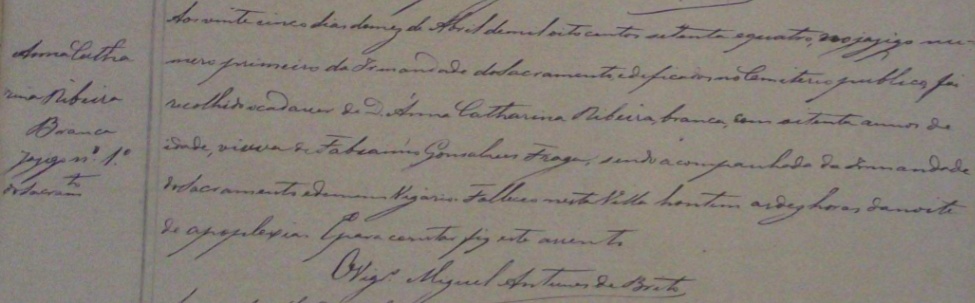 Anna Catha
rina Ribeira
Branca
Jazigo nº. 1º.
do Sacramto
Aos vinte cinco dias do mez de Abril de mil oito centos setenta e quatro, no jazigo nu-
mero primeiro da Irmandade do Sacramento, edificado no Cemiterio publico, foi
recolhido o cadaver de D. Anna Catharina Ribeira, branca, com setenta annos de
idade, viuva de Gonsalves Fraga, sendo acompanhada da Irmandade
do Sacramento e de mim Vigario. Falleceo nesta Villa hontem as dez horas da noite
de apoplexia. E para constar fiz este assento
O Vigº. Miguel Antunes de Brito